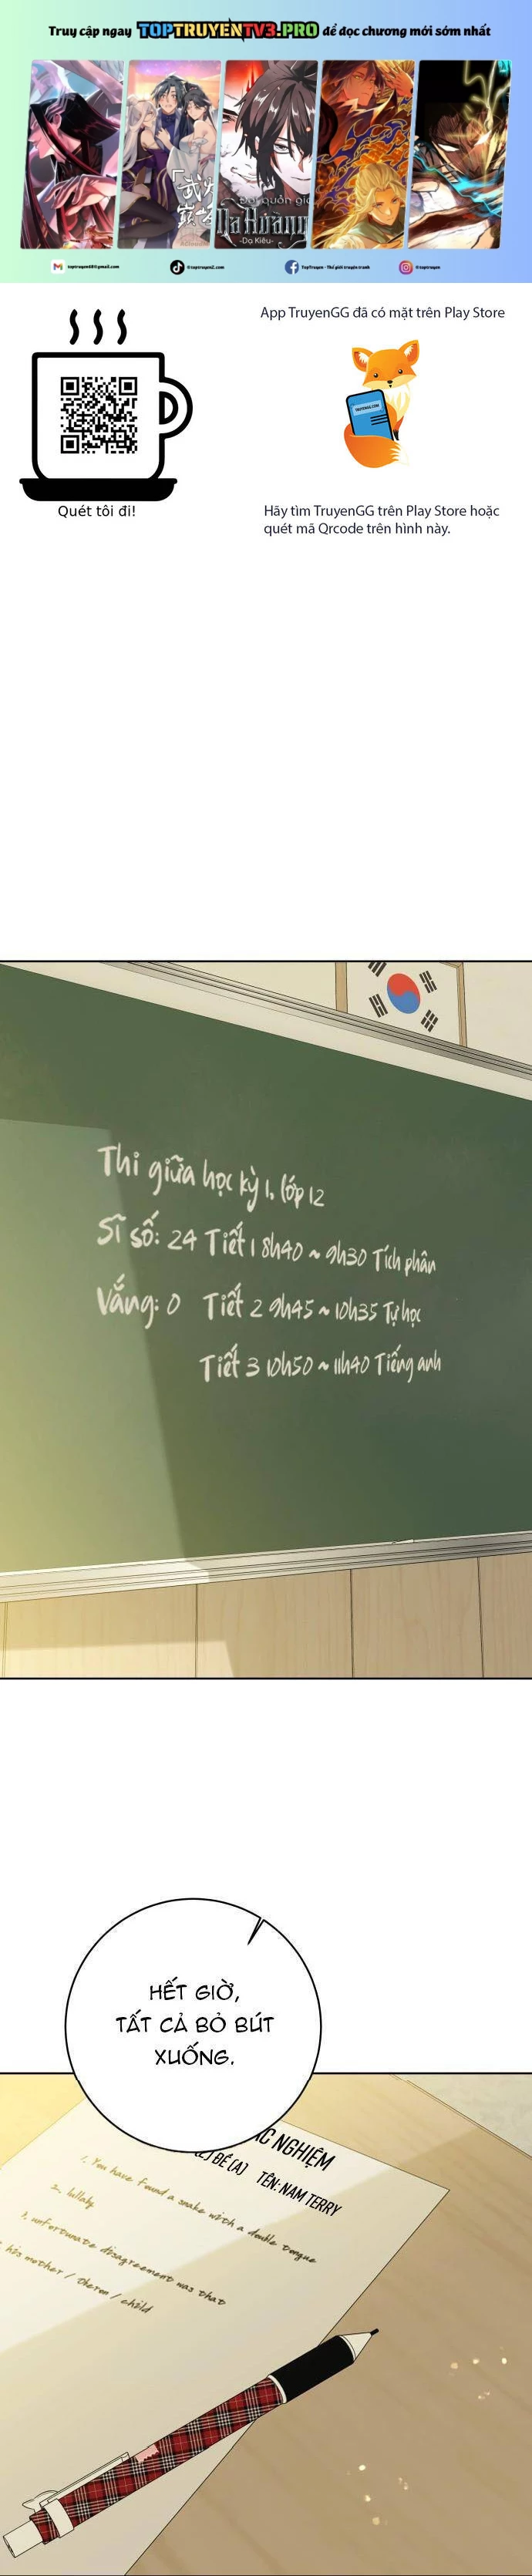 Truy cập ngay TOPTRUYENTV3.PRO để đọc chương mới sớm nhất
Đại quản gia
Dạ Hoàng
-Dạ Kiêu-
toptruyen68@gmail.com
@toptruyen2.com
TopTruyen - Thế giới truyện tranh
@toptruyen
App TruyenGG đã có mặt trên Play Store
TRUYENGG.COM
Quét tôi đi!
Hãy tìm TruyenGG trên Play Store hoặc
quét mã Qrcode trên hình này.
Thi giữa học kỳ 1, lớp 12
Sĩ số: 24 Tiết 1 8h40 ~ 9h30 Tích phân
Vắng: 0 Tiết 2 9h45 ~ 10h35 Tự học
Tiết 3 10h50 ~ 11h40 Tiếng anh
HẾT GIỜ,
TẤT CẢ BỎ BÚT
XUỐNG.
NGHIỆM
ĐỀ (A) TÊN: NAM TERRY
1. You have found a snake with a double tongue
2. lullaby
3. unfortunate disagreement was that
his mother / theron / child